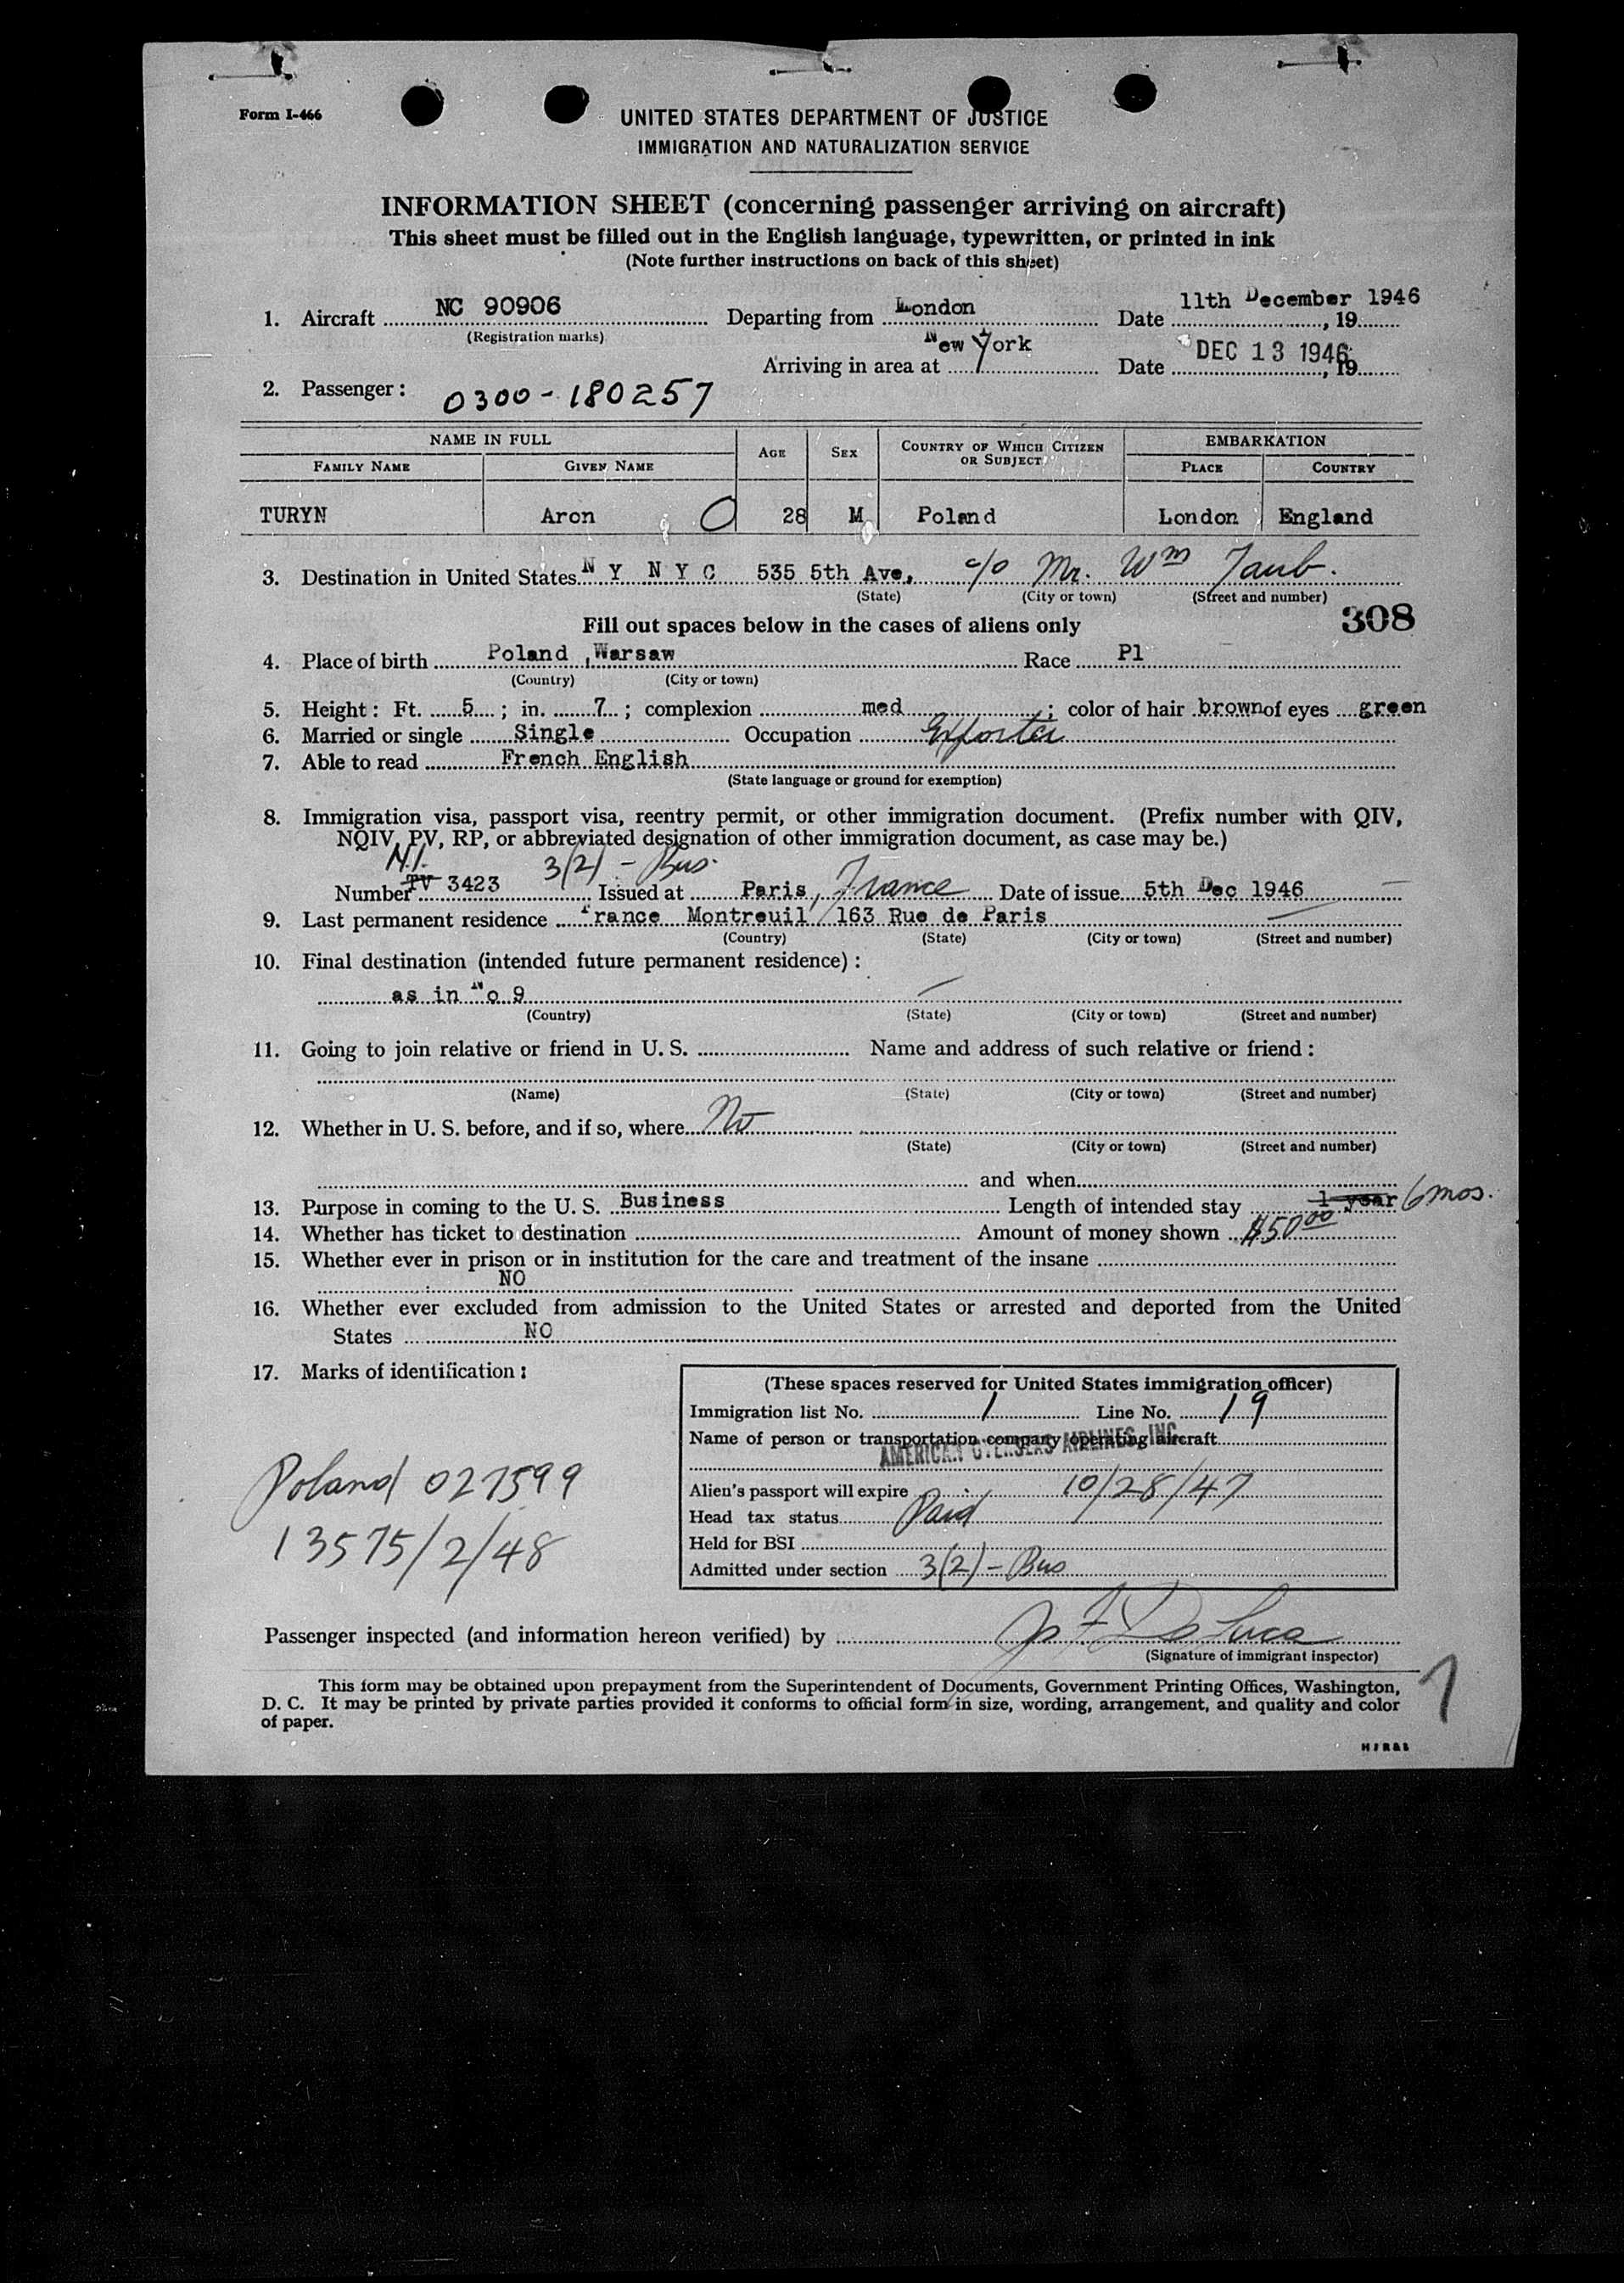 Form I-466
UNITED STATES DEPARTMENT OF JUSTICE
IMMIGRATION AND NATURALIZATION SERVICE
INFORMATION SHEET (concerning passenger arriving on aircraft)
This sheet must be filled out in the English language, typewritten, or printed in ink
(Note further instructions on back of this sheet)
1. Aircraft NC 90906 Departing from London Date 11th December 1946, 19
(Registration marks)
Arriving in area at New York Date DEC 13 1946, 19
2. Passenger: 0300-180257
NAME IN FULL AGE SEX COUNTRY OF WHICH CITIZEN OR SUBJECT EMBARKATION
FAMILY NAME GIVEN NAME PLACE COUNTRY
TURYN Aron O 28 M Poland London England
3. Destination in United States N Y N Y C 535 5th Ave, c/o Mr. Wm Taub.
(State) (City or town) (Street and number)
308
Fill out spaces below in the cases of aliens only
4. Place of birth Poland, Warsaw Race Pl
(Country) (City or town)
5. Height: Ft. 5; in. 7; complexion med; color of hair brown of eyes green
6. Married or single Single Occupation Exporter
7. Able to read French English
(State language or ground for exemption)
8. Immigration visa, passport visa, reentry permit, or other immigration document. (Prefix number with QIV,
NQIV, PV, RP, or abbreviated designation of other immigration document, as case may be.)
N.I. 3(2) - Bus.
Number TV 3423 Issued at Paris, France Date of issue 5th Dec 1946
9. Last permanent residence France Montreuil 163 Rue de Paris
(Country) (State) (City or town) (Street and number)
10. Final destination (intended future permanent residence):
as in No 9
(Country) (State) (City or town) (Street and number)
11. Going to join relative or friend in U. S. Name and address of such relative or friend:
(Name) (State) (City or town) (Street and number)
12. Whether in U. S. before, and if so, where No
(State) (City or town) (Street and number)
and when
13. Purpose in coming to the U. S. Business Length of intended stay 1 year 6 mos.
14. Whether has ticket to destination Amount of money shown $50.00
15. Whether ever in prison or in institution for the care and treatment of the insane
NO
16. Whether ever excluded from admission to the United States or arrested and deported from the United
States NO
17. Marks of identification:
Poland 027599
13575/2/48
(These spaces reserved for United States immigration officer)
Immigration list No. 1 Line No. 19
Name of person or transportation company operating aircraft
AMERICAN OVERSEAS AIRLINES, INC.
Alien's passport will expire 10/28/47
Head tax status Paid
Held for BSI
Admitted under section 3(2) - Bus
Passenger inspected (and information hereon verified) by
(Signature of immigrant inspector)
This form may be obtained upon prepayment from the Superintendent of Documents, Government Printing Offices, Washington,
D. C. It may be printed by private parties provided it conforms to official form in size, wording, arrangement, and quality and color
of paper.
1